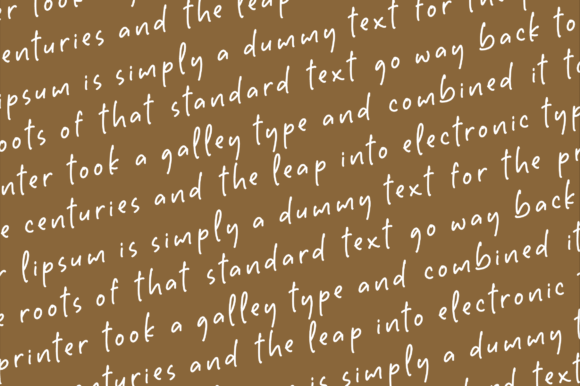 er took
enturies and the leap
ipsum is simply a dummy text for the
oots of that standard text go way back to
inter took a galley type and combined it to
e centuries and the leap into electronic typ
r lipsum is simply a dummy text for the pr
e roots of that standard text go way back
printer took a galley type and combined it
nturies and the leap into electronic
is simply a dummy
text